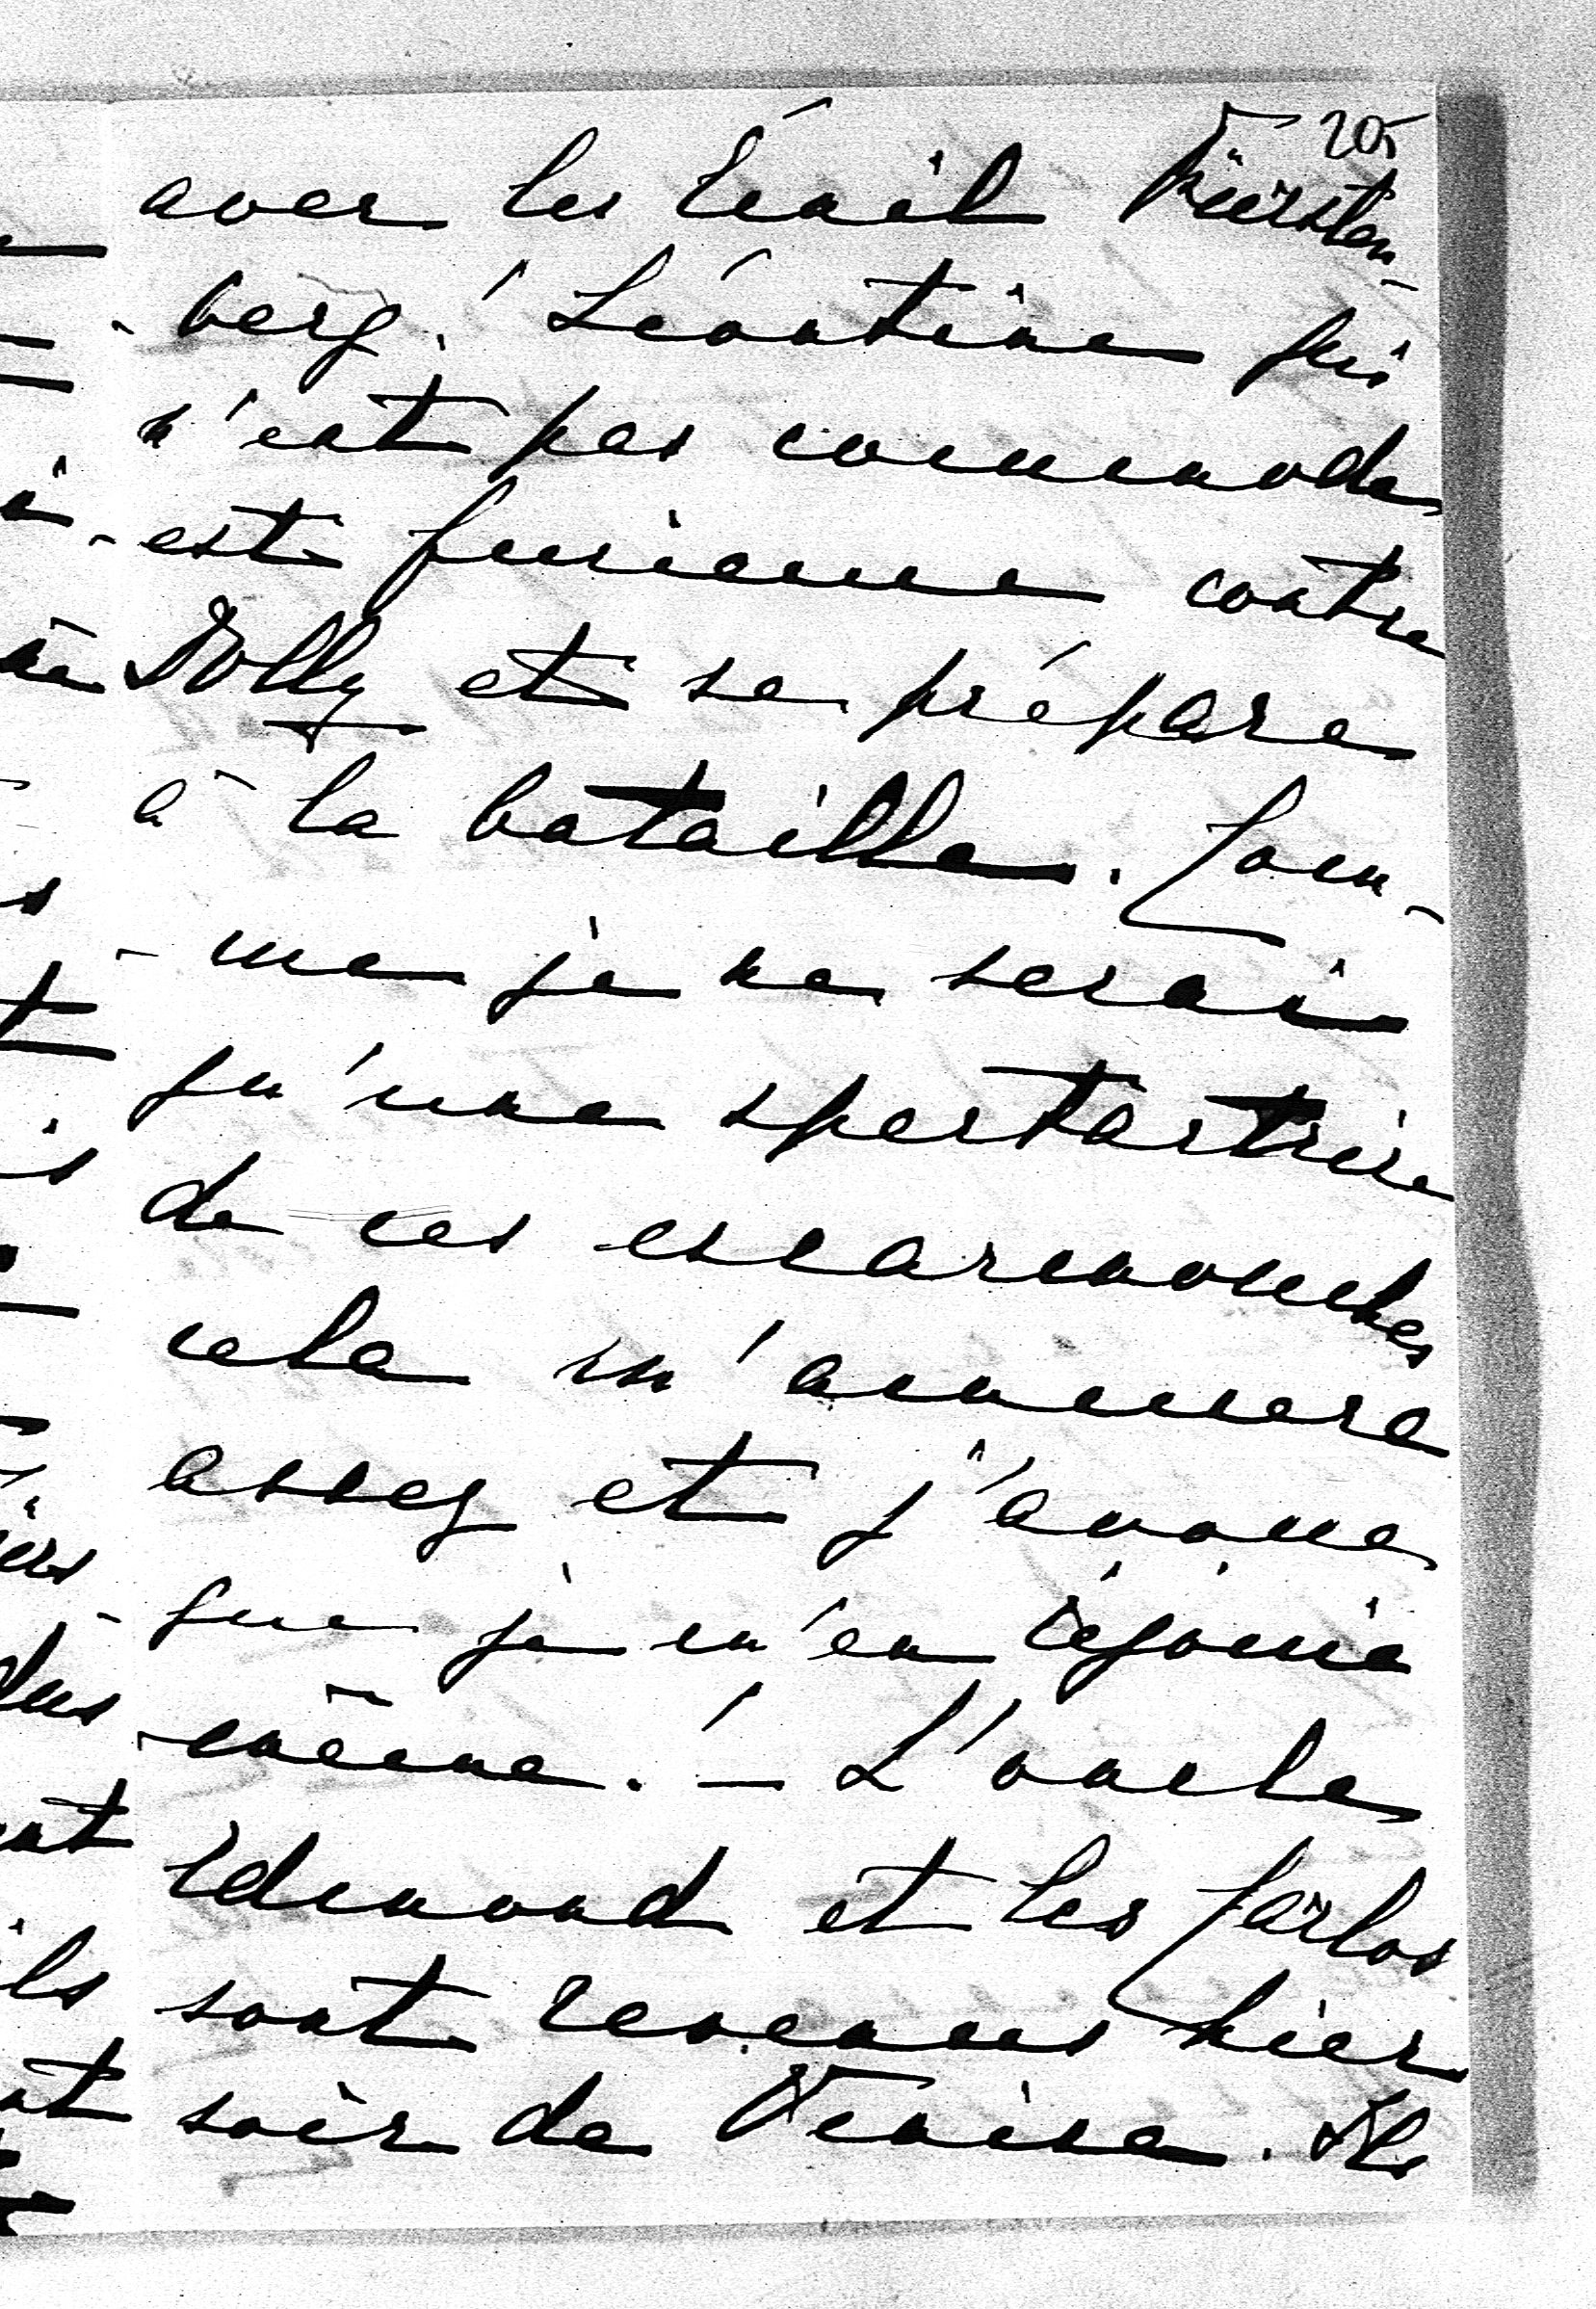 205
avec les Emil Fürsten-
-berg! Léontine qui
n'est pas commode
est furieuse contre
Dolly et se prépare
à la bataille. Com-
-me je ne serai
qu'une spectatrice
de ces escarmouches
cela m'amusera
assez et j'avoue
que je m'en réjouis
même! — L'oncle
Edmond et les Carlos
sont revenus hier
soir de Venise. Ils